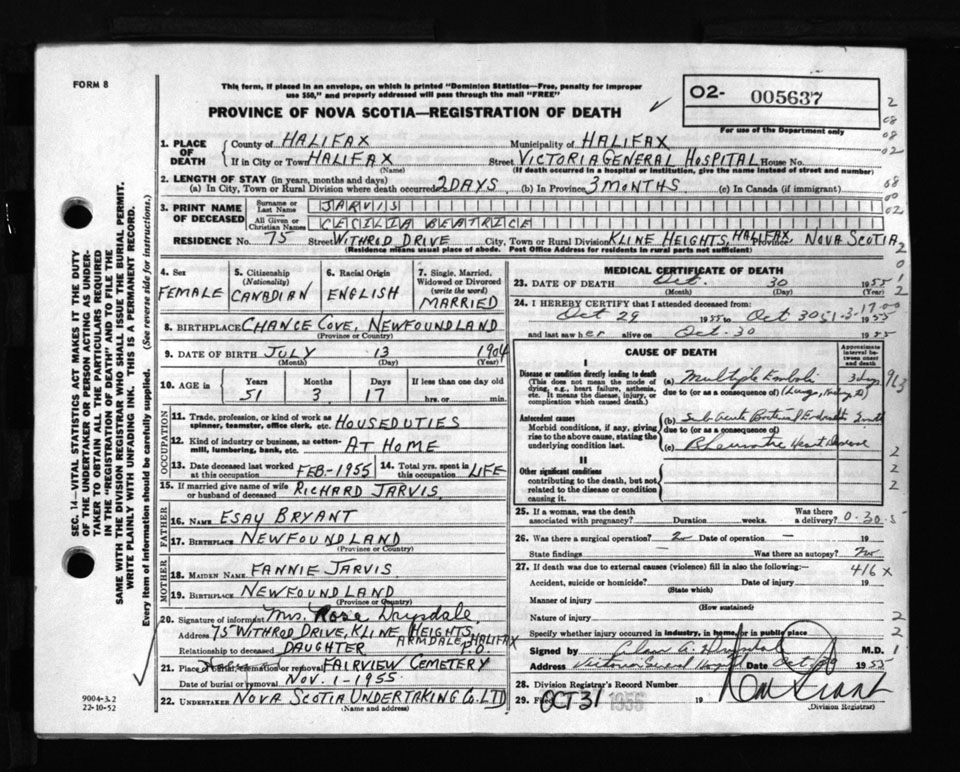 FORM 8
This form, if placed in an envelope, on which is printed "Dominion Statistics—Free, penalty for improper
use $50," and properly addressed will pass through the mail "FREE"
PROVINCE OF NOVA SCOTIA—REGISTRATION OF DEATH
O2- 005637
For use of the Department only
1. PLACE OF DEATH
County of HALIFAX Municipality of HALIFAX
If in City or Town HALIFAX Street VICTORIA GENERAL HOSPITAL House No.
(Name) (If death occurred in a hospital or institution, give the name instead of street and number)
2. LENGTH OF STAY (in years, months and days)
(a) In City, Town or Rural Division where death occurred 2 DAYS (b) In Province 3 MONTHS (c) In Canada (if immigrant)
3. PRINT NAME OF DECEASED
Surname or Last Name JARVIS
All Given or Christian Names CECILIA BEATRICE
RESIDENCE No. 75 Street WITHROD DRIVE City, Town or Rural Division KLINE HEIGHTS, HALIFAX Province NOVA SCOTIA
(Residence means usual place of abode. Post Office Address for residents in rural parts not sufficient)
4. Sex FEMALE
5. Citizenship (Nationality) CANADIAN
6. Racial Origin ENGLISH
7. Single, Married, Widowed or Divorced (write the word) MARRIED
8. BIRTHPLACE CHANCE COVE, NEWFOUNDLAND
(Province or Country)
9. DATE OF BIRTH JULY 13 1904
(Month) (Day) (Year)
10. AGE in Years Months Days If less than one day old
51 3 17 hrs. or min.
OCCUPATION
11. Trade, profession, or kind of work as spinner, teamster, office clerk, etc. HOUSEDUTIES
12. Kind of industry or business, as cotton-mill, lumbering, bank, etc. AT HOME
13. Date deceased last worked at this occupation FEB-1955 14. Total yrs. spent in this occupation LIFE
15. If married give name of wife or husband of deceased RICHARD JARVIS
FATHER
16. NAME ESAY BRYANT
17. BIRTHPLACE NEWFOUNDLAND
(Province or Country)
MOTHER
18. MAIDEN NAME FANNIE JARVIS
19. BIRTHPLACE NEWFOUNDLAND
(Province or Country)
20. Signature of informant Mrs. Rose Drysdale
Address 75 WITHROD DRIVE, KLINE HEIGHTS, ARMDALE, HALIFAX P.O.
Relationship to deceased DAUGHTER
21. Place of burial, cremation or removal FAIRVIEW CEMETERY
Date of burial or removal NOV. 1-1955
22. UNDERTAKER NOVA SCOTIA UNDERTAKING CO. LTD
(Name and address)
MEDICAL CERTIFICATE OF DEATH
23. DATE OF DEATH Oct. 30 1955
(Month) (Day) (Year)
24. I HEREBY CERTIFY that I attended deceased from:
Oct 29 1955 to Oct 30 51-3-17.00
and last saw her alive on Oct-30 1955
CAUSE OF DEATH
Approximate interval between onset and death
I
Disease or condition directly leading to death
(This does not mean the mode of dying, e.g., heart failure, asthenia, etc. It means the disease, injury, or complication which caused death.)
(a) Multiple Emboli 3 days 963
due to (or as a consequence of)
Antecedent causes
Morbid conditions, if any, giving rise to the above cause, stating the underlying condition last.
(b)
due to (or as a consequence of)
(c) Heart Disease
II
Other significant conditions
contributing to the death, but not related to the disease or condition causing it.
25. If a woman, was the death associated with pregnancy? Duration weeks. Was there a delivery? 0-30-5
26. Was there a surgical operation? Date of operation — 19
State findings — Was there an autopsy? No
27. If death was due to external causes (violence) fill in also the following:— 416 X
Accident, suicide or homicide? Date of injury 19
(State which)
Manner of injury
(How sustained)
Nature of injury
Specify whether injury occurred in industry, in home, or in public place
Signed by M.D.
Address Victoria General Hospital Date Oct 1955
28. Division Registrar's Record Number
29. Filed OCT 31 1955 19
(Division Registrar)
SEC. 14—VITAL STATISTICS ACT MAKES IT THE DUTY
OF THE UNDERTAKER OR PERSON ACTING AS UNDER-
TAKER TO OBTAIN ALL THE PARTICULARS REQUIRED
IN THE "REGISTRATION OF DEATH" AND TO FILE THE
SAME WITH THE DIVISION REGISTRAR WHO SHALL ISSUE THE BURIAL PERMIT.
WRITE PLAINLY WITH UNFADING INK. THIS IS A PERMANENT RECORD.
Every item of information should be carefully supplied. (See reverse side for instructions.)
9004-3.2
22-10-52